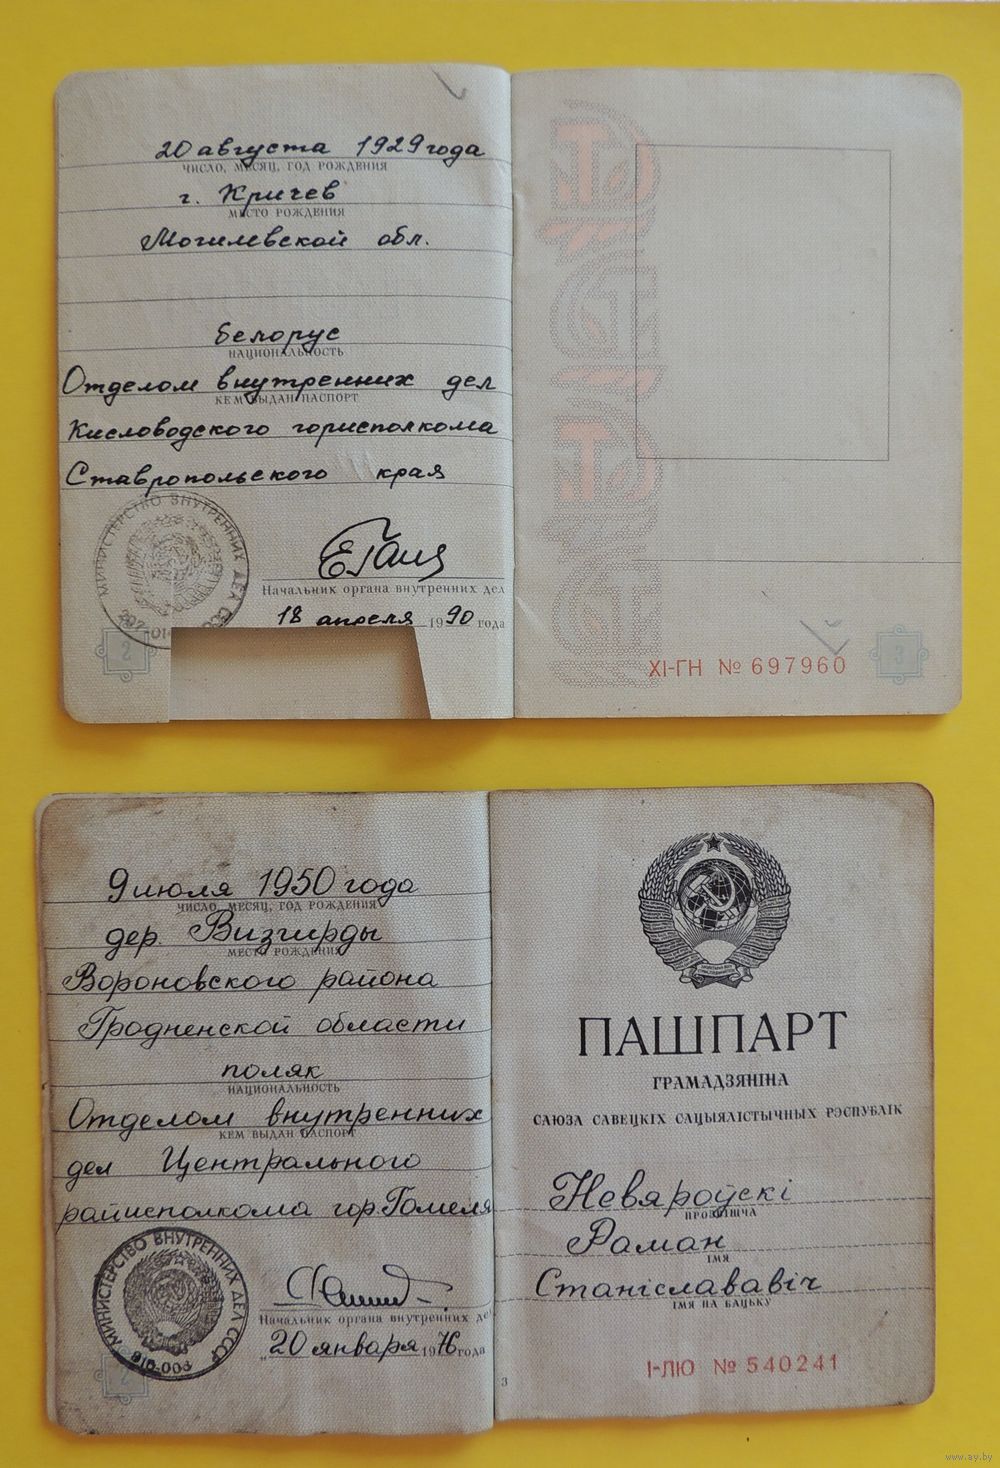 20 августа 1929 года
ЧИСЛО, МЕСЯЦ, ГОД РОЖДЕНИЯ
г. Кричев
МЕСТО РОЖДЕНИЯ
Могилевской обл.
белорус
НАЦИОНАЛЬНОСТЬ
Отделом внутренних дел
КЕМ ВЫДАН ПАСПОРТ
Кисловодского горисполкома
Ставропольского края
МИНИСТЕРСТВО ВНУТРЕННИХ ДЕЛ СССР
Начальник органа внутренних дел
18 апреля 1990 года
2
XI-ГН № 697960
3
9 июля 1950 года
ЧИСЛО, МЕСЯЦ, ГОД РОЖДЕНИЯ
дер. Визгирды
МЕСТО РОЖДЕНИЯ
Вороновского района
Гродненской области
поляк
НАЦИОНАЛЬНОСТЬ
Отделом внутренних
КЕМ ВЫДАН ПАСПОРТ
дел Центрального
райисполкома гор. Гомеля
МИНИСТЕРСТВО ВНУТРЕННИХ ДЕЛ СССР
Начальник органа внутренних де
"20 января 1976 года
2
ПАШПАРТ
ГРАМАДЗЯНІНА
САЮЗА САВЕЦКІХ САЦЫЯЛІСТЫЧНЫХ РЭСПУБЛІК
Невяроўскі
ПРОЗВІШЧА
Раман
ІМЯ
Станіслававіч
ІМЯ ПА БАЦЬКУ
I-ЛЮ № 540241
3
www.ay.by